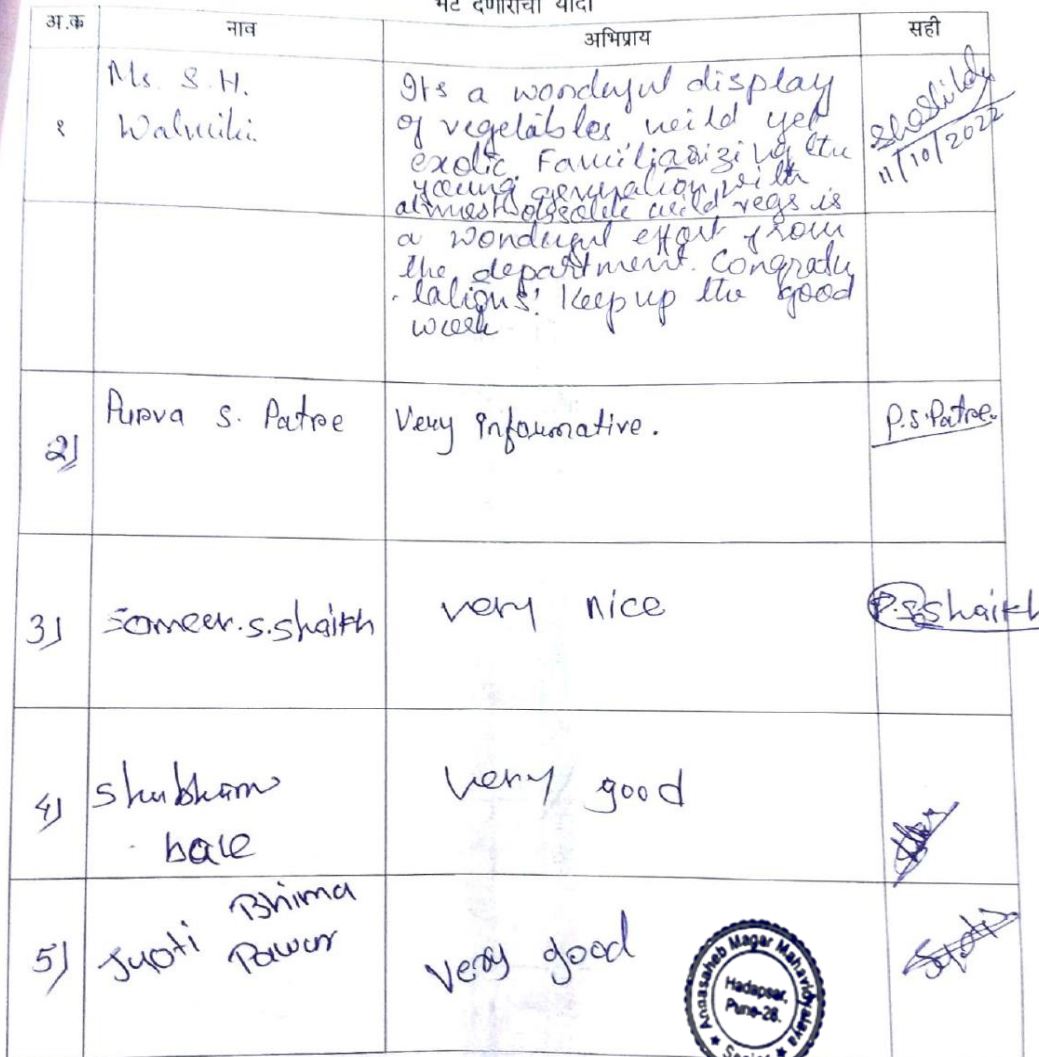 भेट देणाऱ्यांची यादी
अ.क्र नाव अभिप्राय सही
१ Ms. S. H. Walmiki.
Its a wonderful display
of vegetables wild yet
exotic. Familiarizing the
young generation with
almost obsolete wild vegs is
a wonderful effort from
the department. Congratu
lations! Keep up the good
work
11/10/2022
2) Purva S. Patre Very informative. P.S.Patre.
3) Sameer.S.Shaikh very nice P.S.Shaikh
4) Shubham very good
bale
5) Jyoti Bhima Pawar very good Jyoti
Annasaheb Magar Mahavidyalaya
Hadapsar,
Pune-28.
Senior